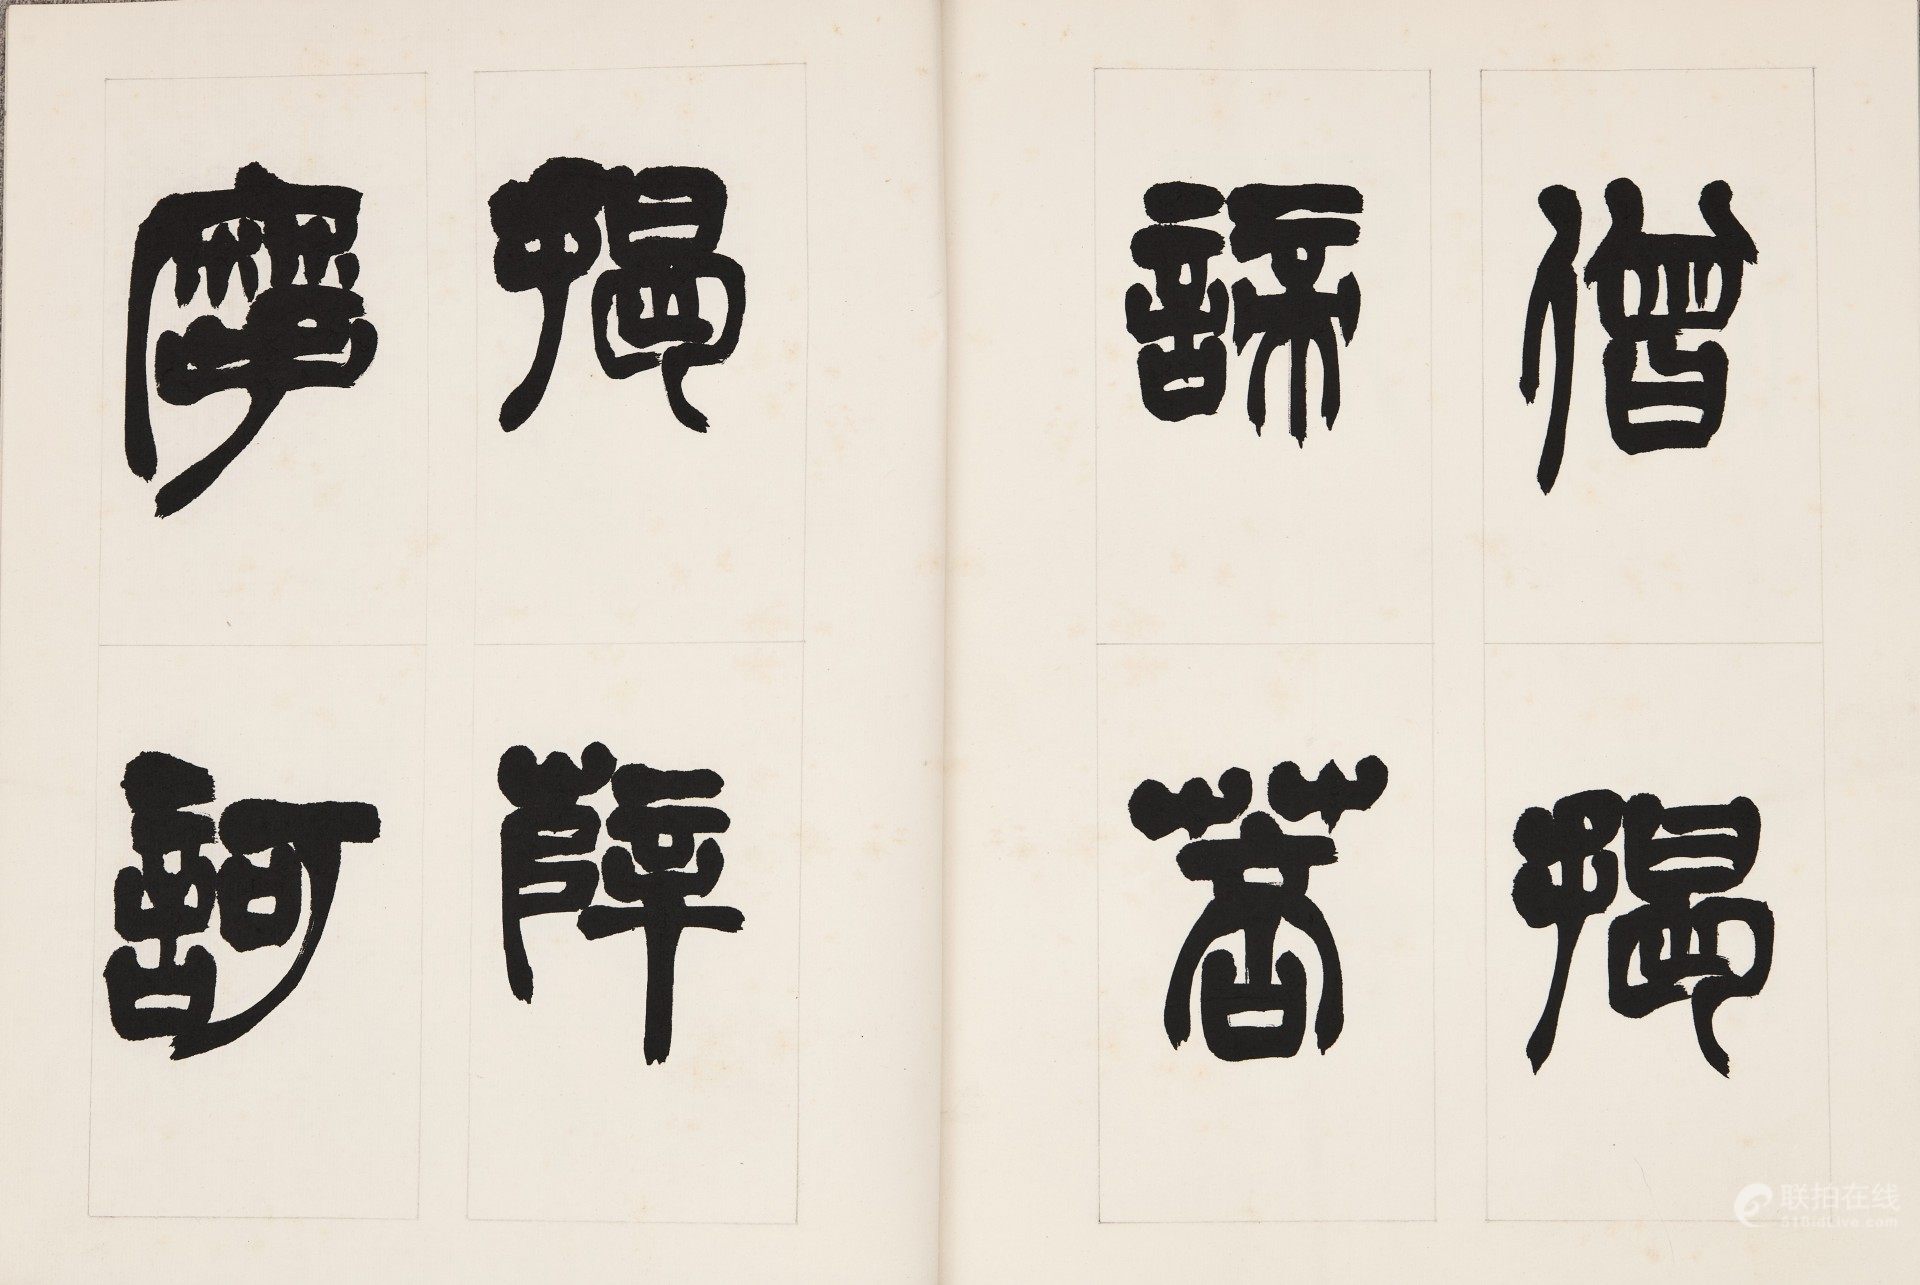 僧揭
諦菩
揭薩
摩訶
联拍在线
518idLive.com